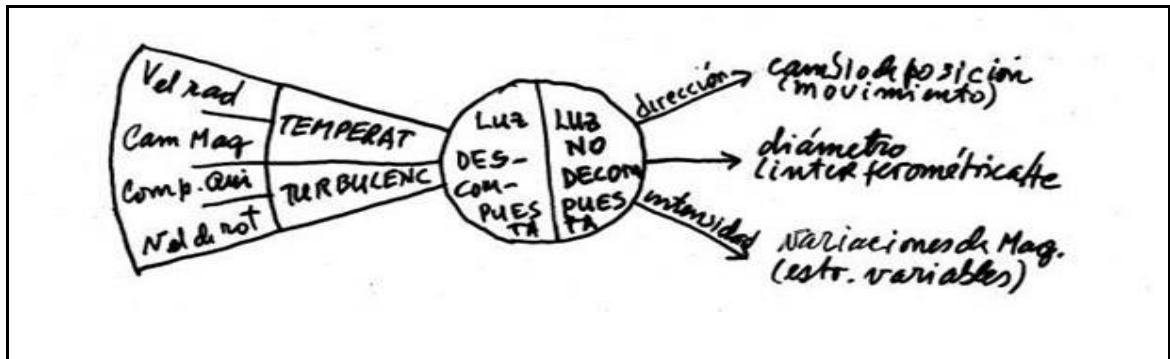 Vel rad
Cam Mag
Comp. Qui
Vel de rot
TEMPERAT
TURBULENC
LUZ
DES-
COM-
PUES
TA
LUZ
NO
DECOM
PUES
TA
dirección
cambio de posición
(movimiento)
diámetro
(interferométricatte
intensidad
variaciones de Mag.
(estr. variables)